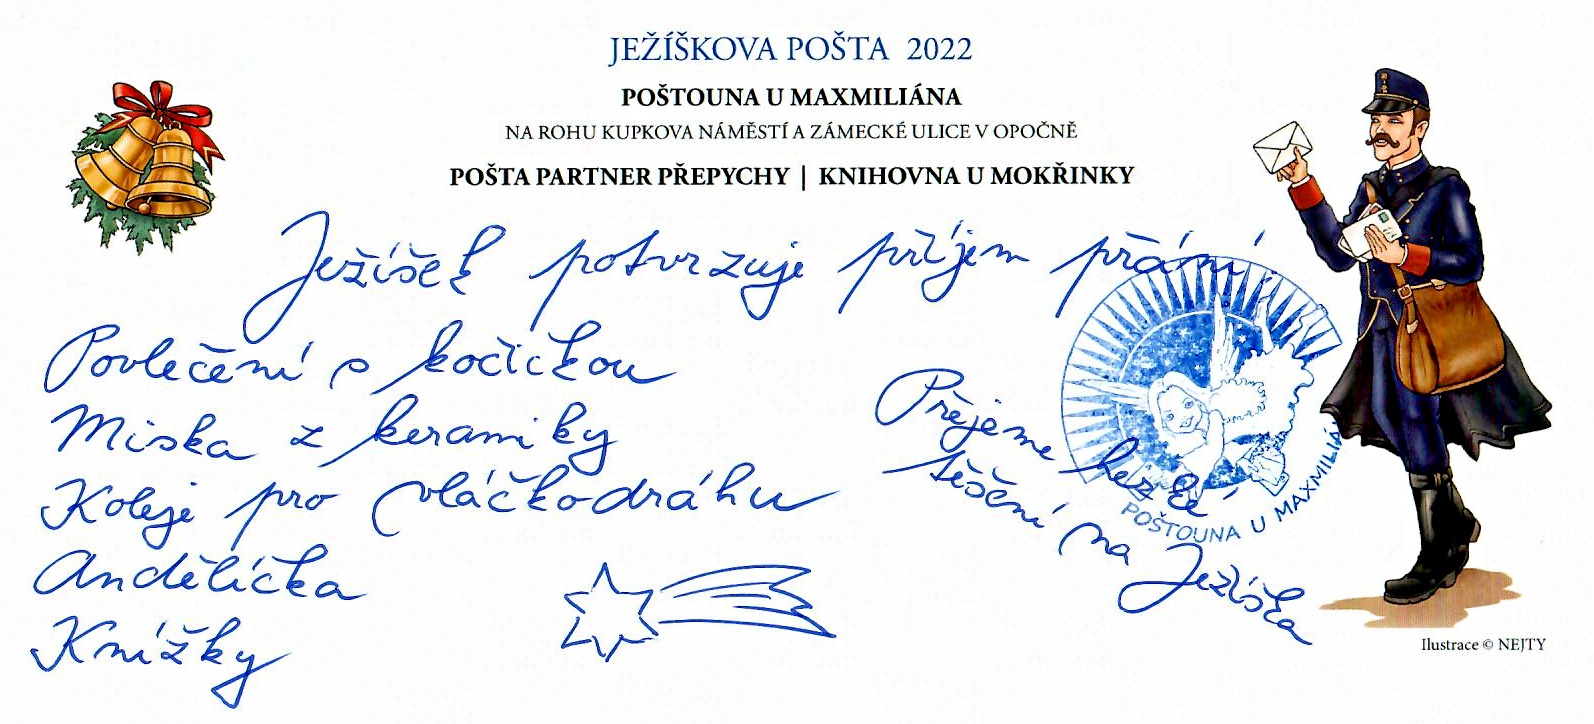 JEŽÍŠKOVA POŠTA 2022
POŠTOUNA U MAXMILIÁNA
NA ROHU KUPKOVA NÁMĚSTÍ A ZÁMECKÉ ULICE V OPOČNĚ
POŠTA PARTNER PŘEPYCHY | KNIHOVNA U MOKŘINKY
Ježíšek potvrzuje příjem přání:
Povlečení s kočičkou
Miska z keramiky
Koleje pro vláčkodráhu
Andělíčka
Knížky
Přejeme hezké
těšení na
Ježíška
POŠTOUNA U MAXMILIÁ
Ilustrace © NEJTY